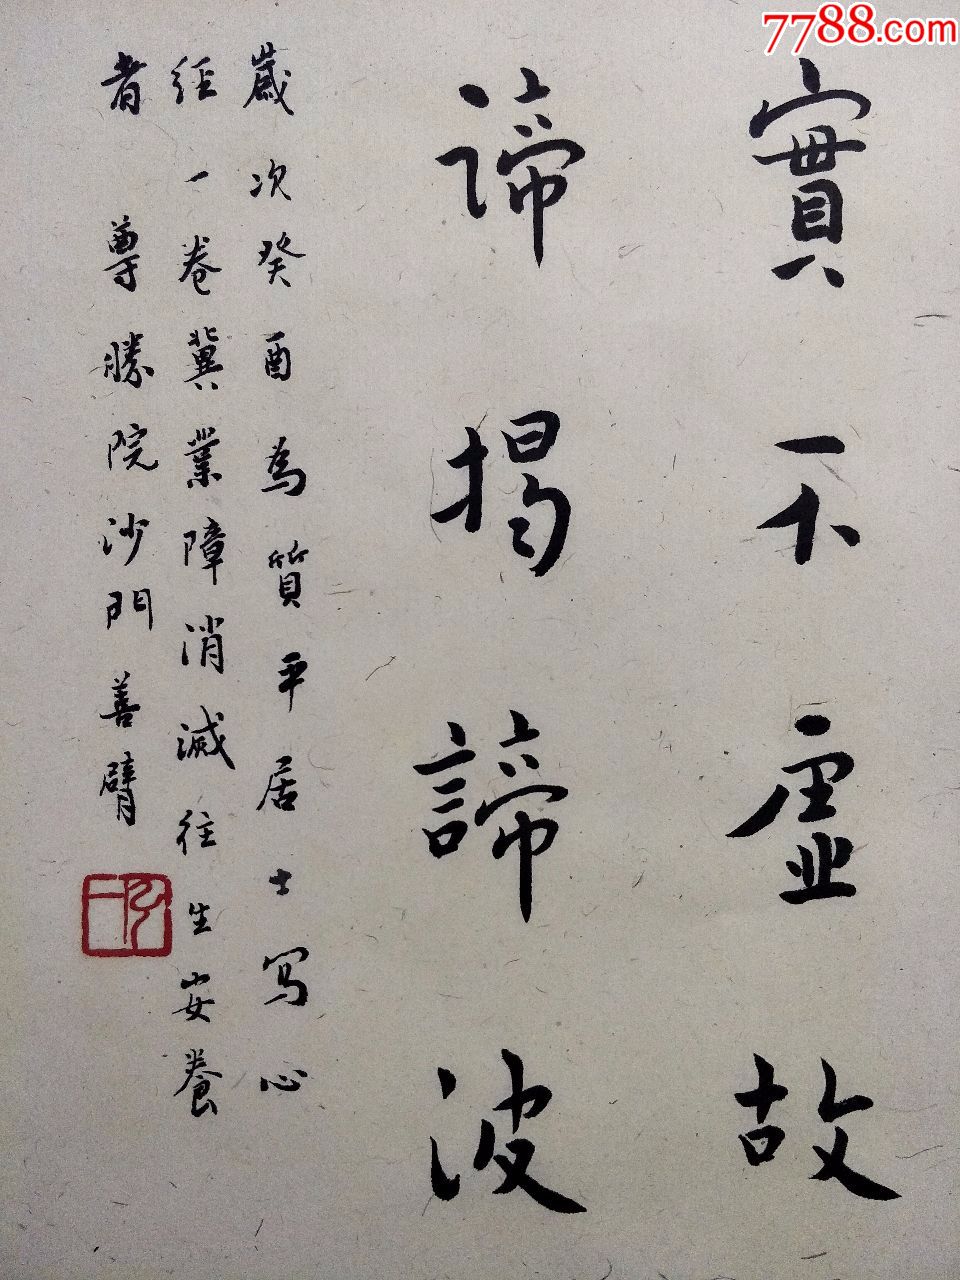 7788.com
實不虛故
諦揭諦波
歲次癸酉為質平居士寫心
經一卷冀業障消滅往生安養
者尊勝院沙門善臂